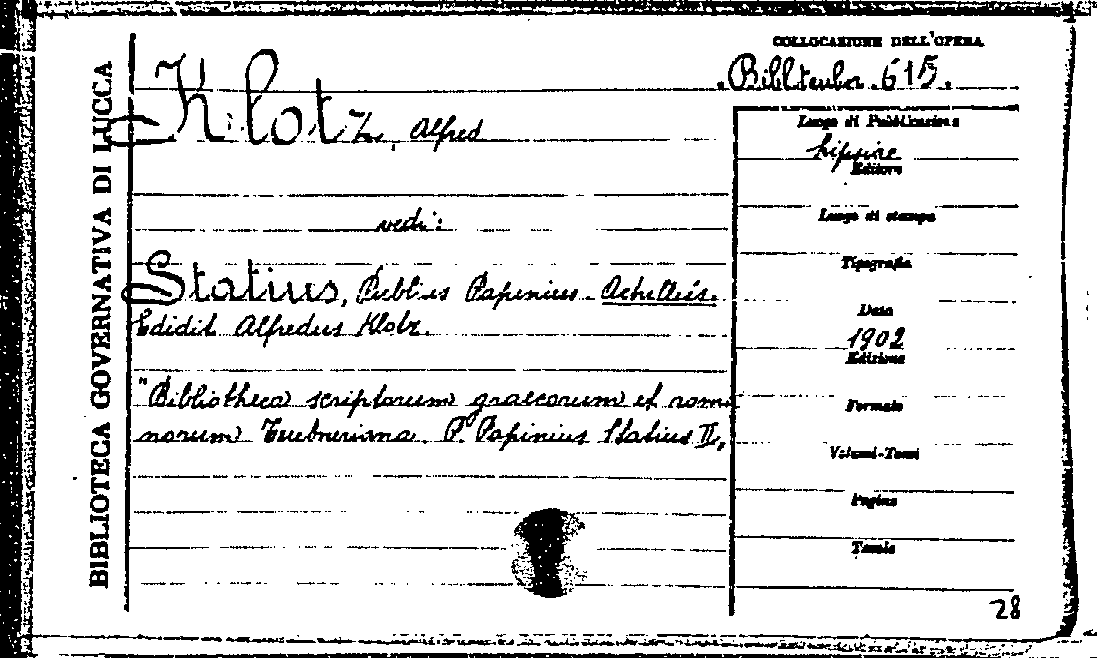 BIBLIOTECA GOVERNATIVA DI LUCCA
COLLOCAZIONE DELL'OPERA
Bibl. teubn. 615.
Klotz, Alfred
vedi:
Statius, Publius Papinius. Achilleis.
Edidit Alfredus Klotz.
"Bibliotheca scriptorum graecorum et roma
norum Teubneriana. P. Papinius Statius II,
Luogo di Pubblicazione
Lipsiae
Editore
Luogo di stampa
Tipografia
Data
1902
Edizione
Formato
Volumi-Tomi
Pagine
Tavole
28